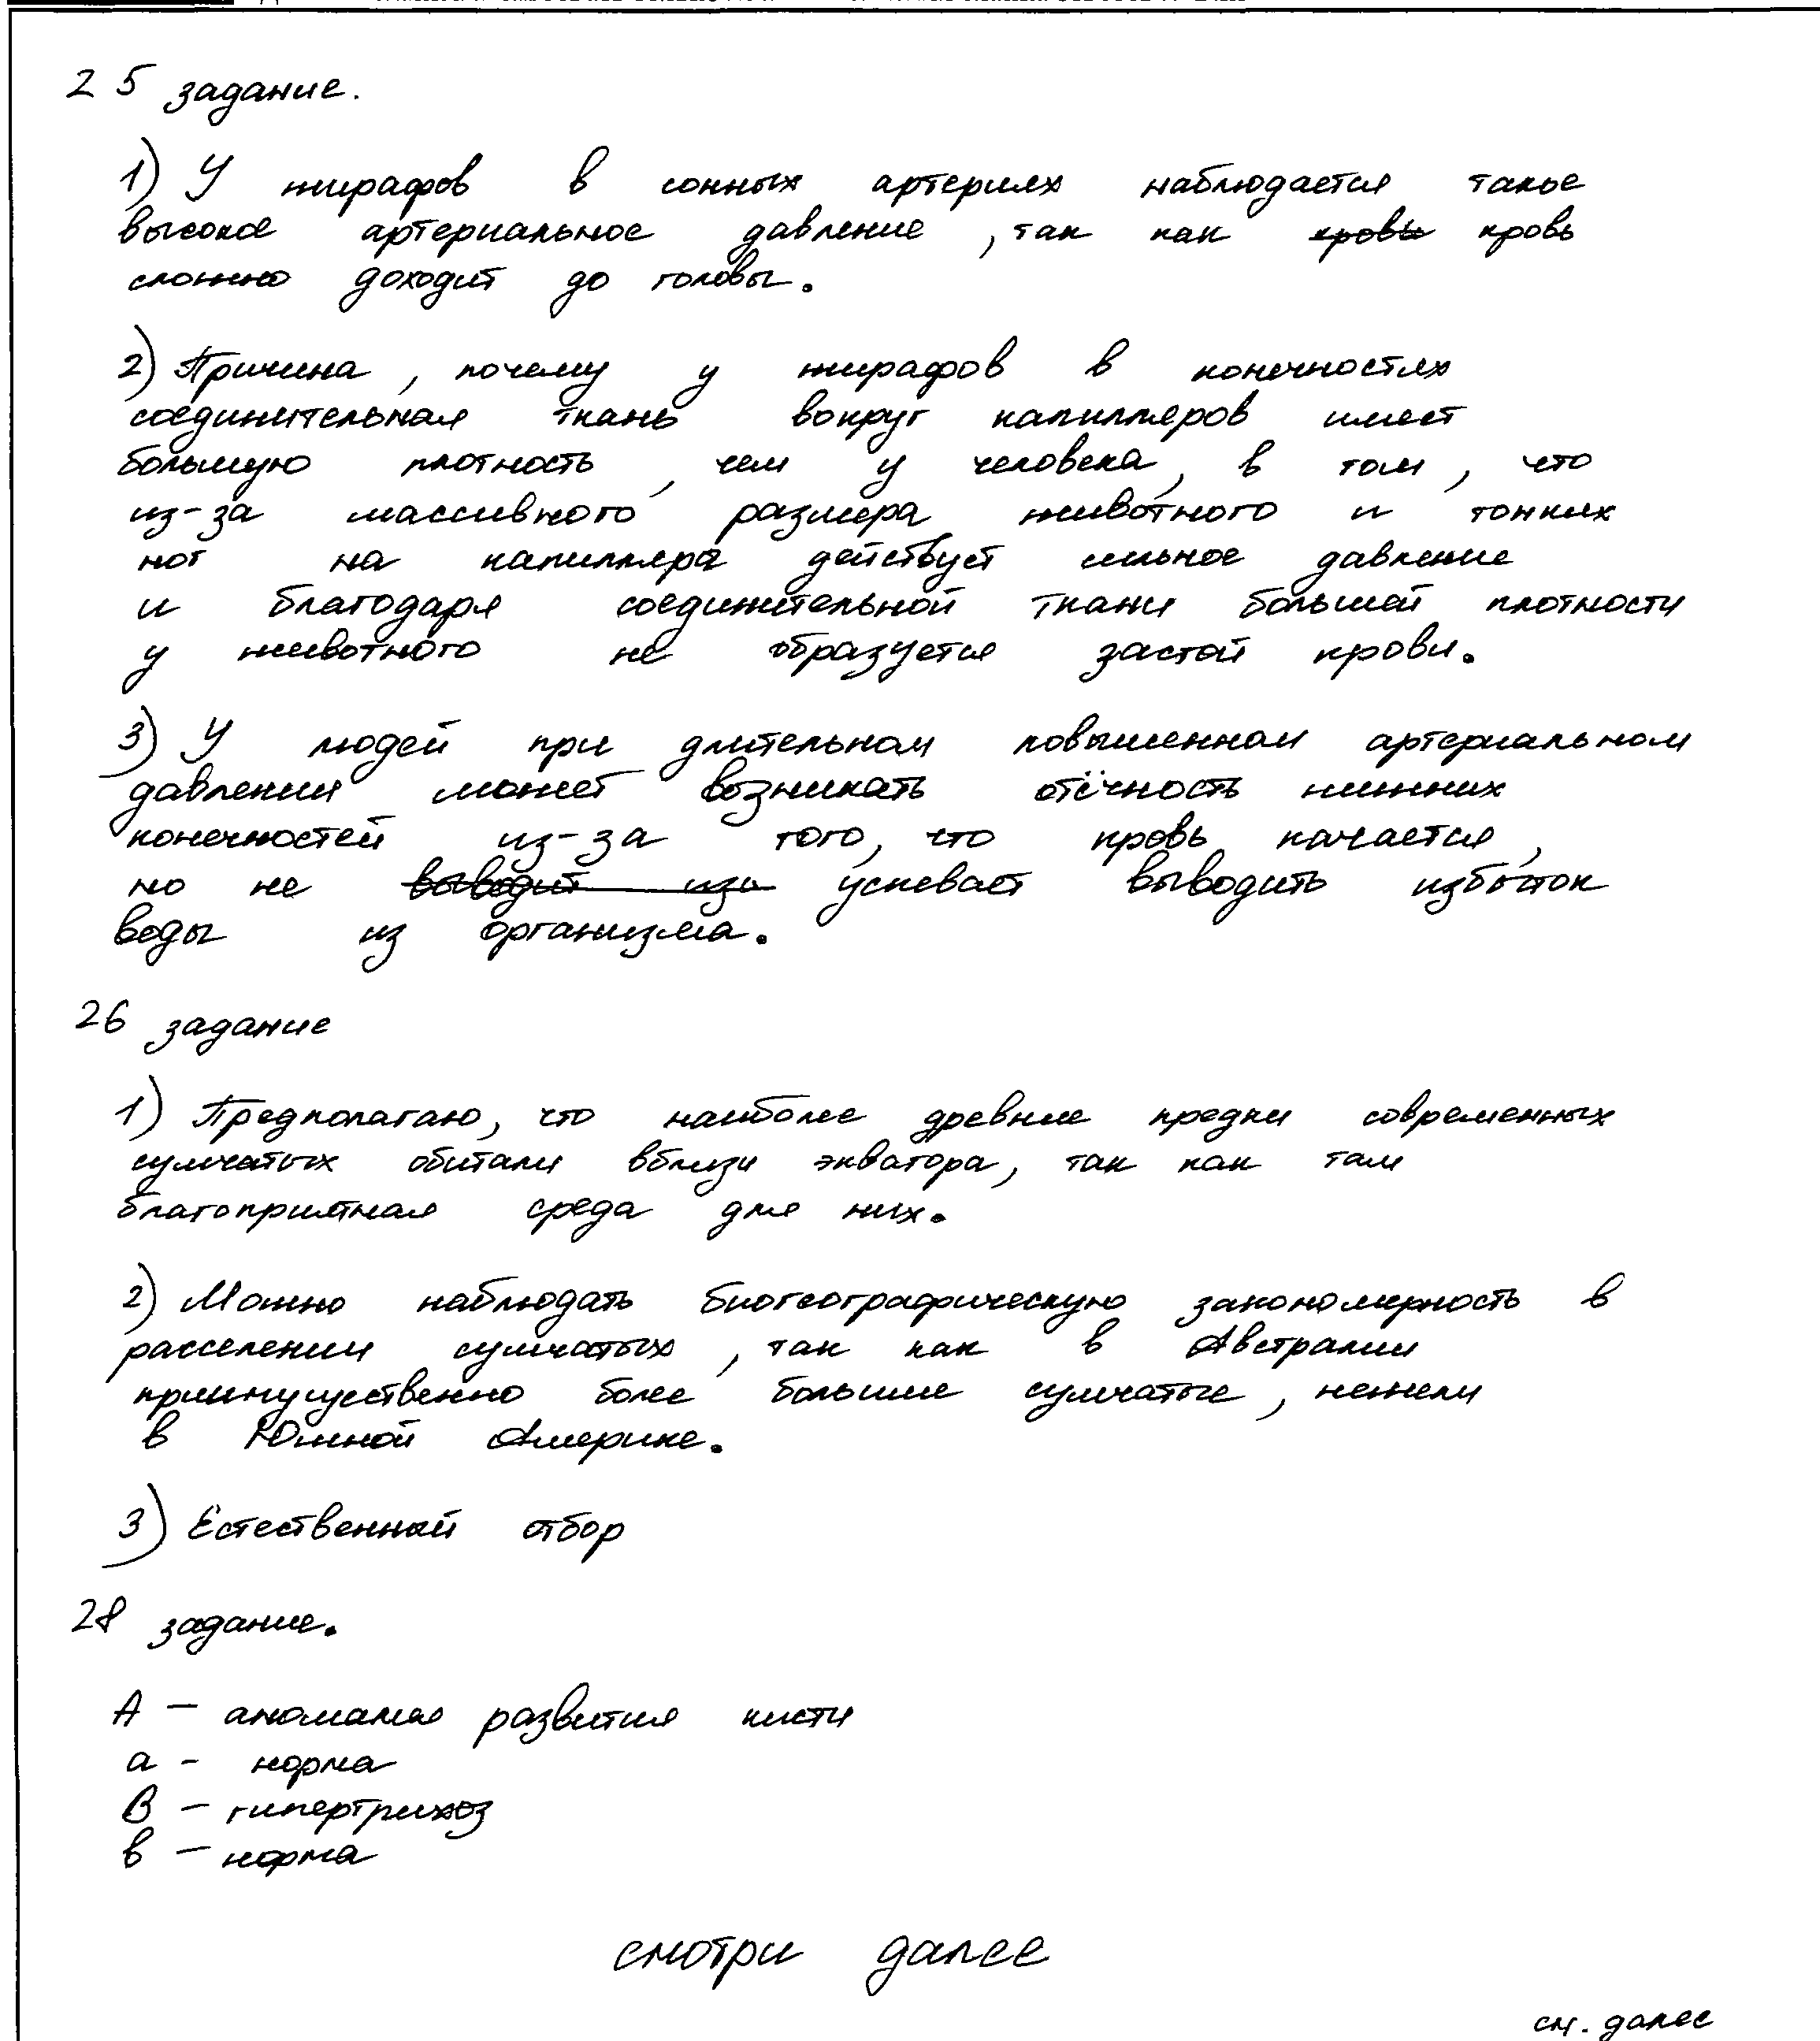 25 задание.
1) У жирафов в сонных артериях наблюдается такое
высокое артериальное давление, так как кровь кровь
сложно доходит до головы.
2) Причина, почему у жирафов в конечностях
соединительная ткань вокруг капилляров имеет
большую плотность, чем у человека, в том, что
из-за массивного размера животного и тонких
ног на капилляра действует сильное давление
и благодаря соединительной ткани большей плотности
у животного не образуется застой крови.
3) У людей при длительном повышенном артериальном
давлении может возникать отёчность нижних
конечностей из-за того, что кровь качается,
но не выводит изи успевает выводить избыток
воды из организма.
26 задание
1) Предполагаю, что наиболее древние предки современных
сумчатых обитали вблизи экватора, так как там
благоприятная среда для них.
2) Можно наблюдать биогеографическую закономерность в
расселении сумчатых, так как в Австралии
приимущественно более большие сумчатые, нежели
в Южной Америке.
3) Естественный отбор
28 задание.
А – аномалия развития кисти
а - норма
В – гипертрихоз
в – норма
смотри далее
см. далее